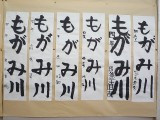 もがみ川
もがみ川
もがみ川
もがみ川
もがみ川
もがみ川